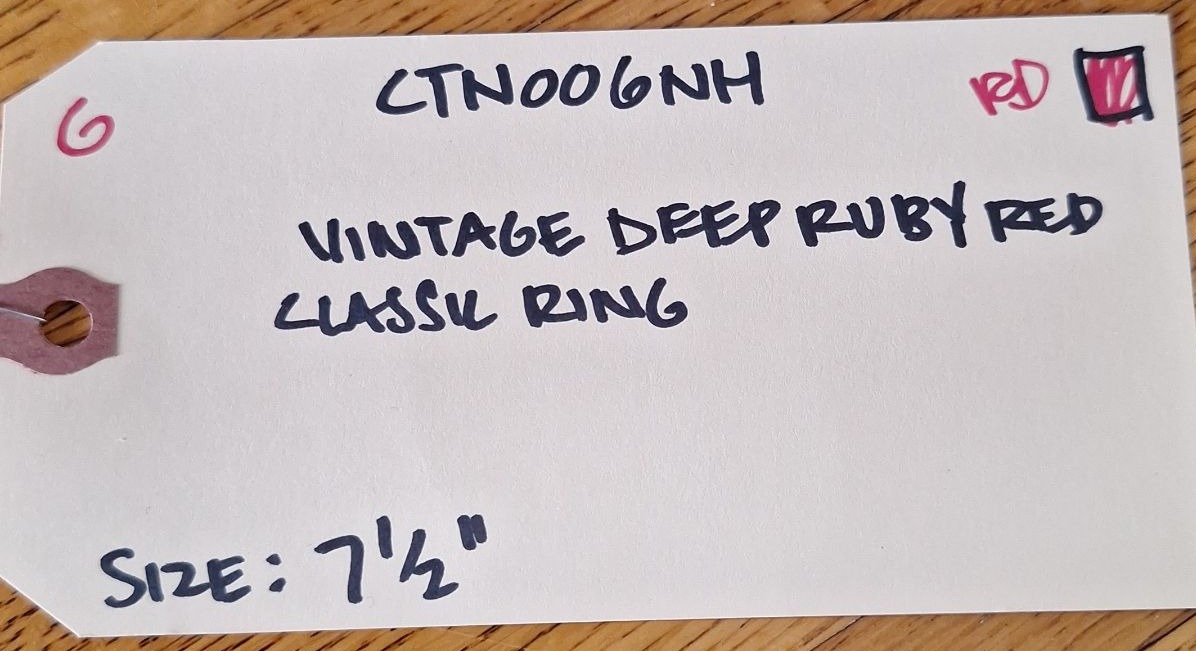 6
CTN006NH
RD
VINTAGE DEEP RUBY RED
CLASSIC RING
SIZE: 7 1/2"